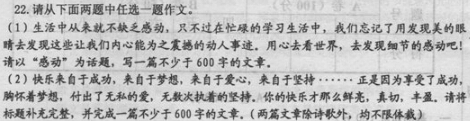 22.请从下面两题中任选一题作文。
(1)生活中从来就不缺乏感动，只不过在忙碌的学习生活中，我们忘记了用发现美的眼
睛去发现这些让我们内心能为之震撼的动人事迹。用心去看世界，去发现细节的感动吧！
请以“感动”为话题，写一篇不少于600字的文章。
(2)快乐来自于成功，来自于梦想，来自于爱心，来自于坚持……正是因为享受了成功，
胸怀着梦想，付出了无私的爱，无数次执着的坚持，你的快乐才那么鲜亮，真切，丰盈。请将
标题补充完整，并完成一篇不少于600字的文章。（两篇文章除诗歌外，均不限体裁）